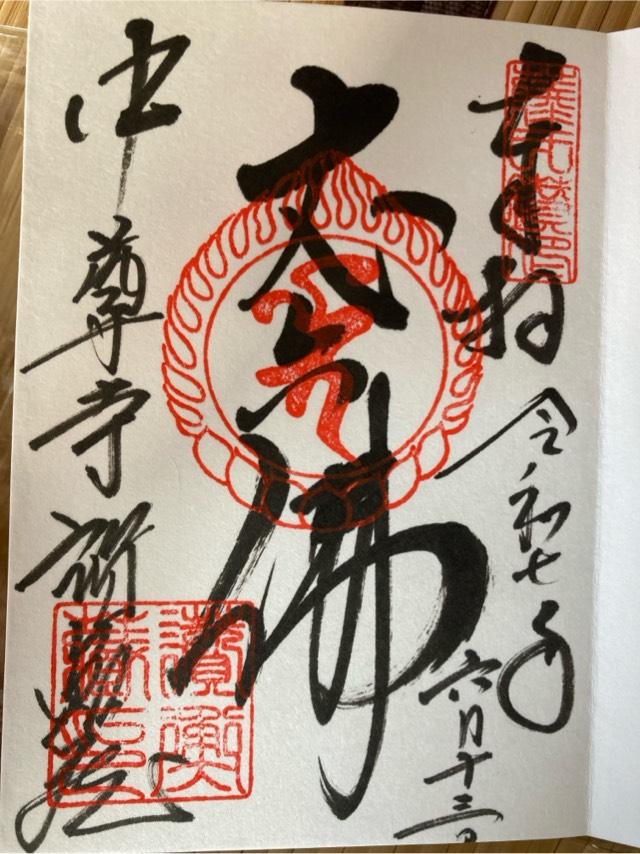 奉拝
令和七年
六月十三日
丈六佛
中尊寺 讃衡蔵
讃衡
蔵印